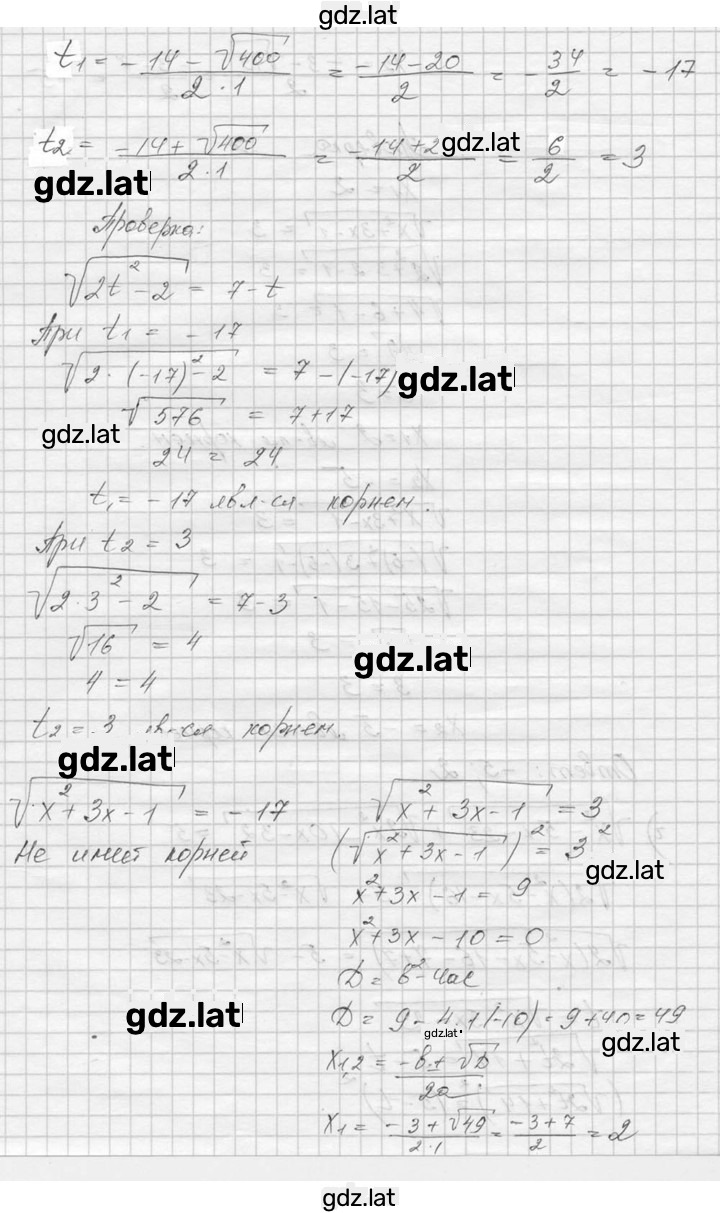 gdz.lat
t₁ = (-14 - √400)/(2·1) = (-14-20)/2 = -34/2 = -17
t₂ = (-14 + √400)/(2·1) = (-14+2)/2 = 6/2 = 3
gdz.lat
gdz.lat
Проверка:
√(2t²-2) = 7-t
При t₁ = -17
√(2·(-17)²-2) = 7-(-17)
gdz.lat
√576 = 7+17
gdz.lat
24 = 24
t₁ = -17 явл-ся корнем.
При t₂ = 3
√(2·3²-2) = 7-3
√16 = 4
gdz.lat
4 = 4
t₂ = 3 явл-ся корнем
gdz.lat
√(x²+3x-1) = -17
Не имеет корней
√(x²+3x-1) = 3
(√(x²+3x-1))² = 3²
gdz.lat
x²+3x-1 = 9
x²+3x-10 = 0
D = b²-4ac
gdz.lat
D = 9-4·1·(-10) = 9+40 = 49
gdz.lat
gdz.lat
x₁,₂ = (-b±√D)/2a
x₁ = (-3+√49)/(2·1) = (-3+7)/2 = 2
gdz.lat